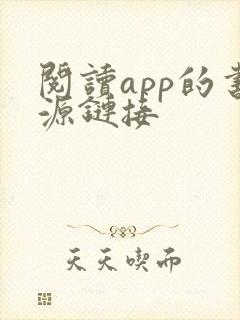 閱讀app的書
源鏈接
天天喫而